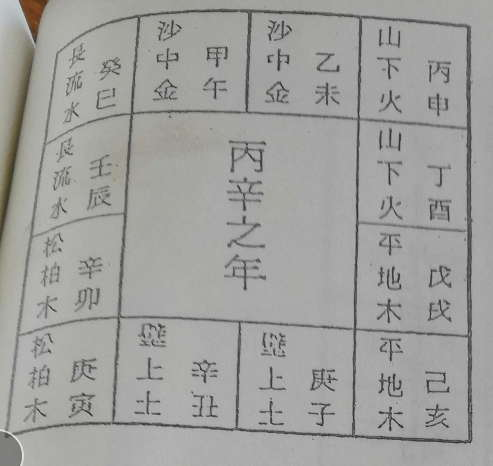 丙申
山下火
乙未
沙中金
甲午
沙中金
癸巳
長流水
丁酉
山下火
丙辛之年
壬辰
長流水
戊戌
平地木
辛卯
松柏木
己亥
平地木
庚子
壁上土
辛丑
壁上土
庚寅
松柏木